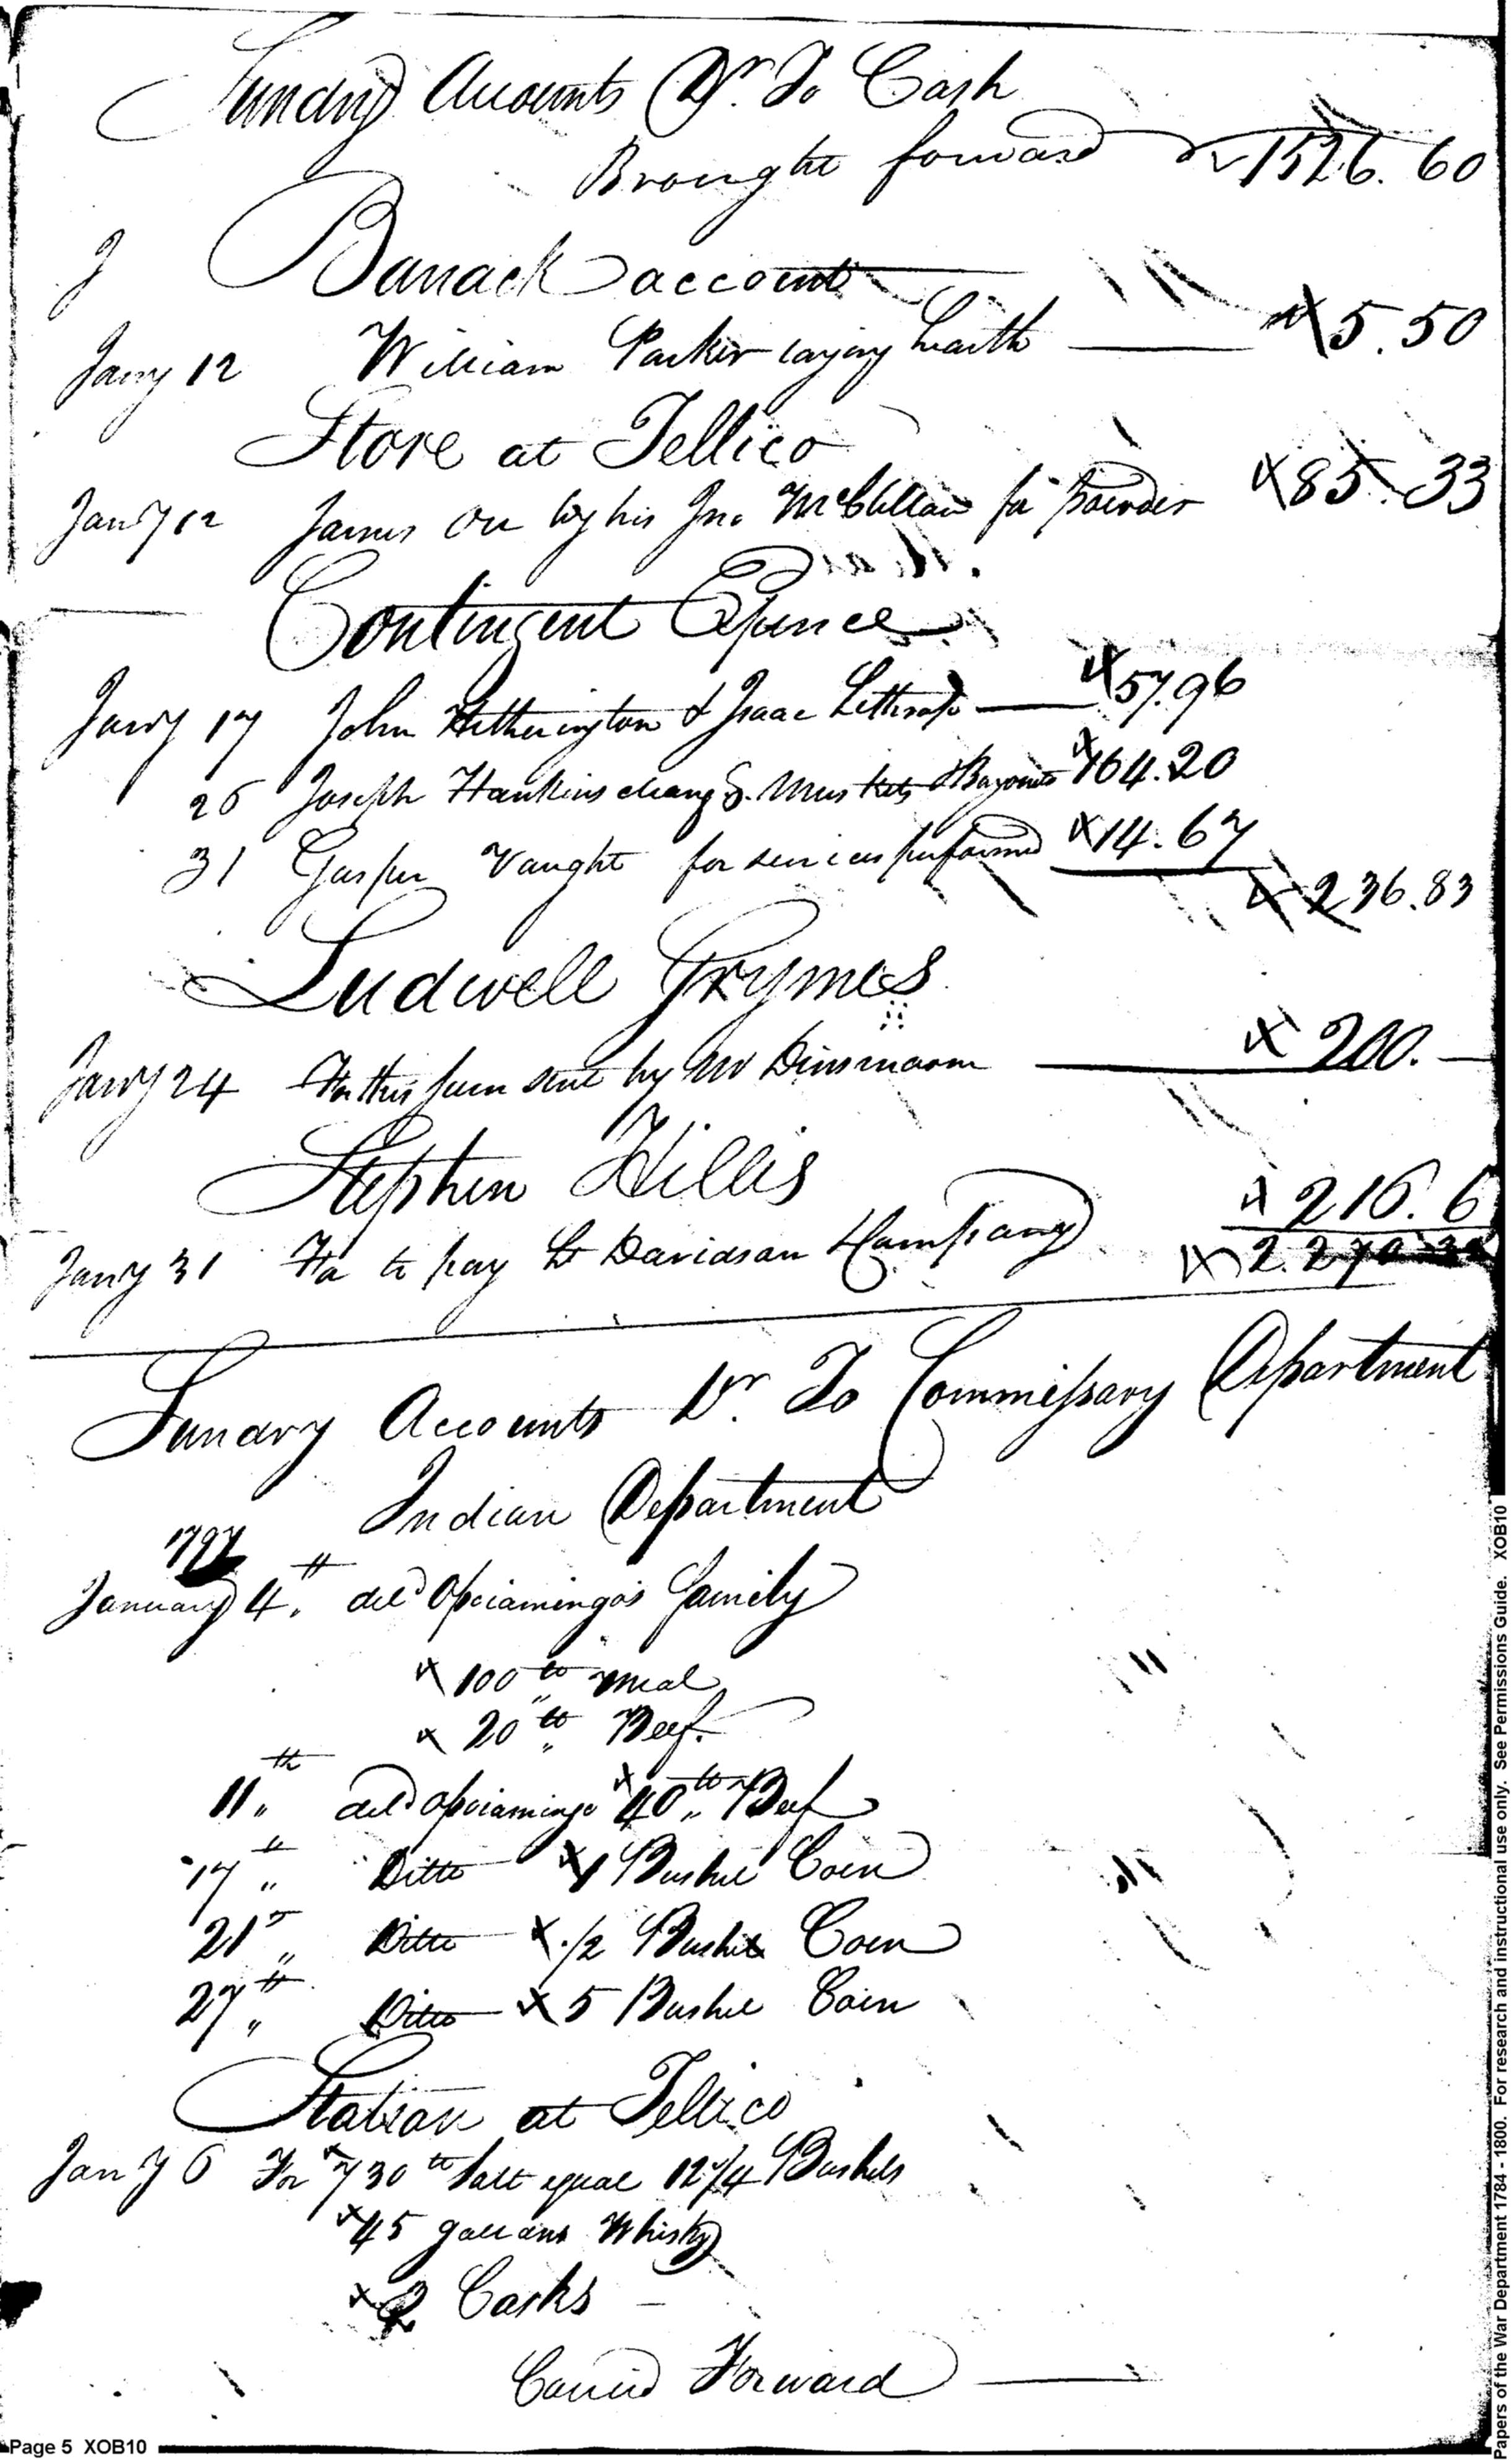 Sundry Accounts Dr. To Cash
Brought forward 1526.60
Barrack account
Jany 12 William Parker laying hearth 5.50
Store at Tellico
Jany 12 James Orr by his Jno McClellan for powder 85.33
Contingent Expence
Jany 17 John Hetherington & Isaac 57.96
26 Joseph Hankins cleang &. Muskets & Bayonets 164.20
31 Gasper Vaught for services performed 14.67
236.83
Ludwell Grymes
Jany 24 For this sum sent by Mr Dinsmoore 200.
Stephen Hillis
Jany 31 For to pay Lt Davidson Company 216.6
2.270
Sundry Accounts Dr. To Commissary Department
Indian Department
1797
January 4th del'd Opiamingo's family
100 lb meal
20 lb Beef.
11th del'd Opiamingo 40 lb Beef
17th Ditto 1 Bushel Corn
21st Ditto 1/2 Bushel Corn
27th Ditto 5 Bushel Corn
Station at Tellico
Jany 6 For 730 lb Salt equal Bushels
45 gallons Whisky
2 Casks
Carried Forward
Page 5 XOB10
Papers of the War Department 1784 - 1800. For research and instructional use only. See Permissions Guide. XOB10